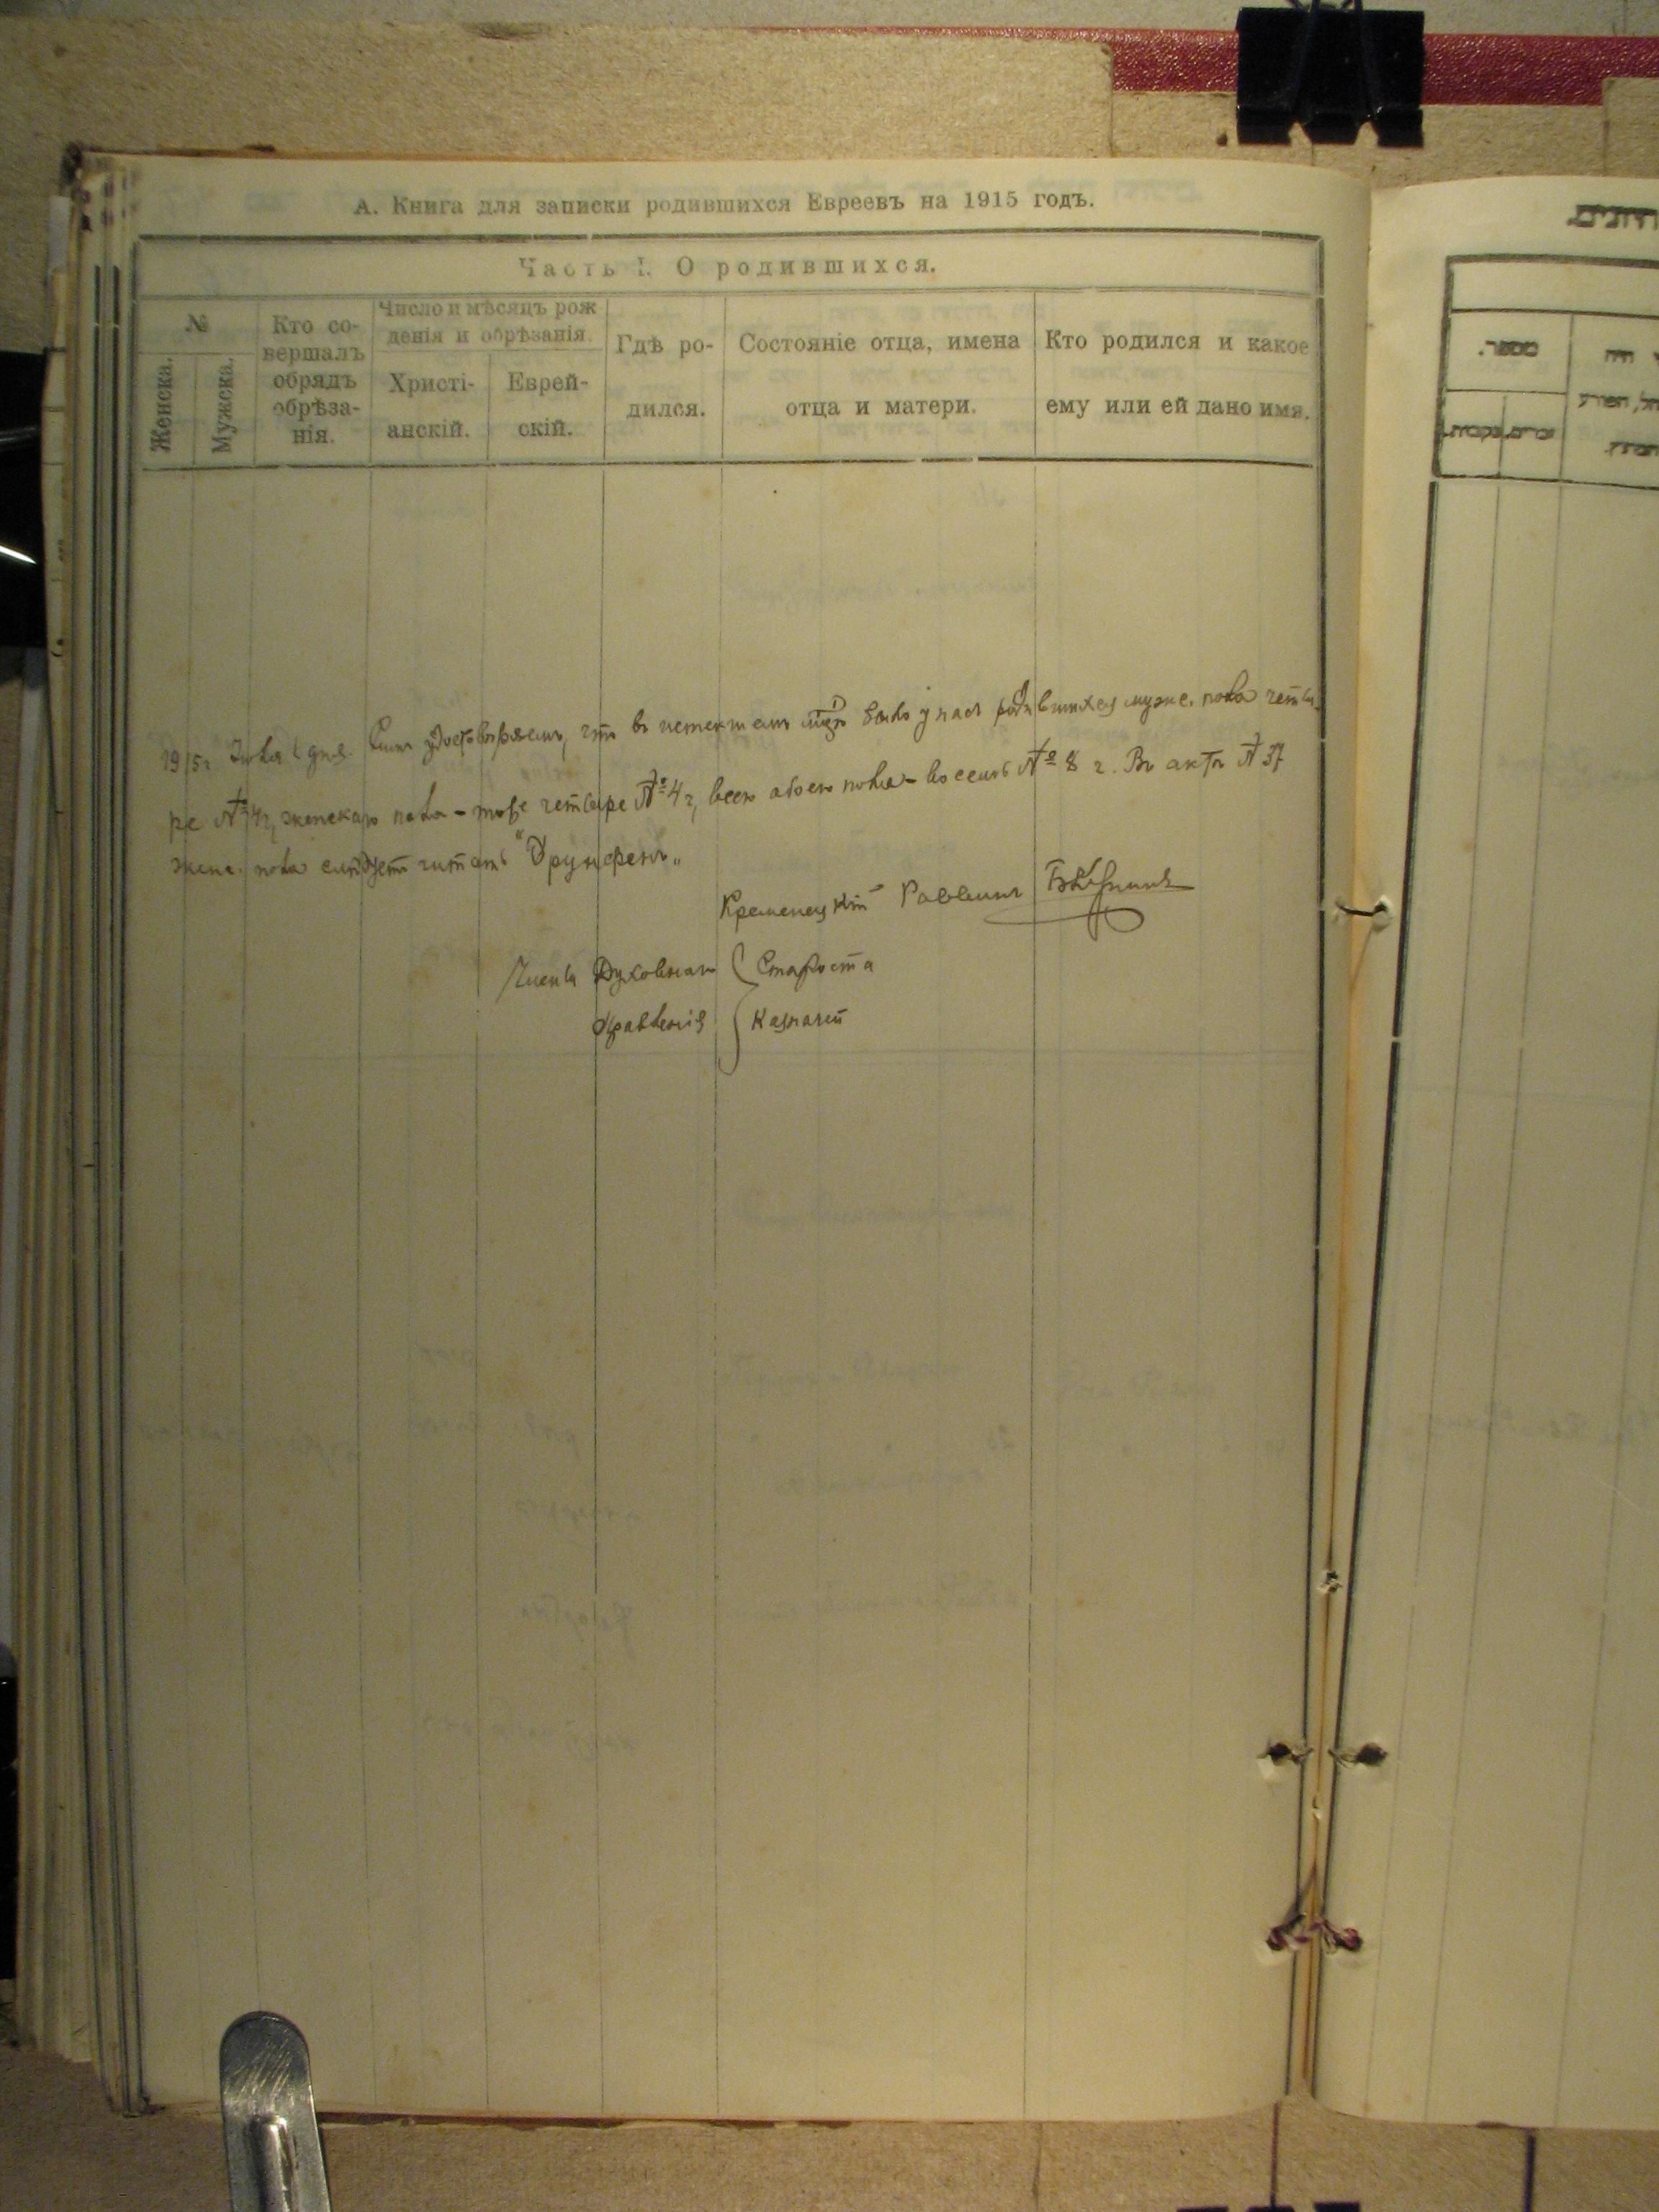 А. Книга для записки родившихся Евреевъ на 1915 годъ.
Часть I. О родившихся.
№
Женска.
Мужска.
Кто со-
вершалъ
обрядъ
обрѣза-
нія.
Число и мѣсяцъ рож
денія и обрѣзанія.
Христі-
анскій.
Еврей-
скій.
Гдѣ ро-
дился.
Состояніе отца, имена
отца и матери.
Кто родился и какое
ему или ей дано имя.
1915 г дня. Симъ удостовѣряемъ, что въ истекшемъ было у насъ родившихся мужс. пола четы-
ре № 4, женскаго пола - тоже четыре № 4, всего обоего пола - восемь № 8. Въ актѣ № 37
женс. пола слѣдуетъ читать "
Кременецкій Раввинъ
Члены Духовнаго Староста
Правленія Казначей
מספר.
זכרים.
נקבות.